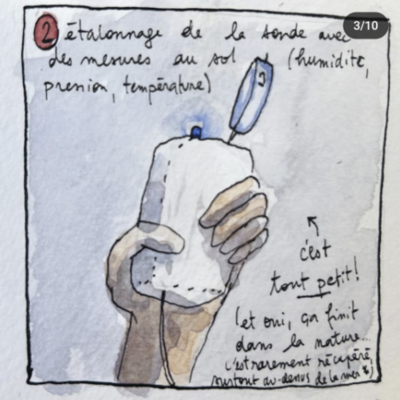 3/10
2 étalonnage de la sonde avec
des mesures au sol (humidité,
pression, température)
c'est
tout petit!
(et oui, ça finit
dans la nature...
c'est rarement récupéré,
surtout au-dessus de la mer